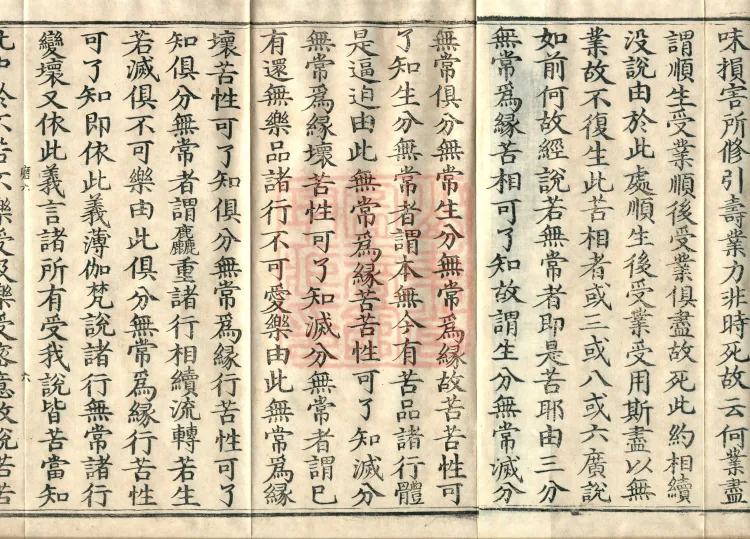 味損害所修引壽業力非時死故云何業盡
謂順生受業順後受業俱盡故死此約相續
没說由於此處順生後受業受用斯盡以無
業故不復生此苦相者或三或八或六廣說
如前何故經說若無常者即是苦耶由三分
無常爲縁苦相可了知故謂生分無常滅分
無常俱分無常生分無常爲縁故苦苦性可
了知生分無常者謂本無今有苦品諸行體
是逼迫由此無常爲縁苦苦性可了知滅分
無常爲縁壞苦性可了知滅分無常者謂已
有還無樂品諸行不可愛樂由此無常爲縁
壞苦性可了知俱分無常爲縁行苦性可了
知俱分無常者謂麤重諸行相續流轉若生
若滅俱不可樂由此俱分無常爲縁行苦性
可了知即依此義薄伽梵說諸行無常諸行
變壞又依此義言諸所有受我說皆苦當知
此中於不苦不樂受及樂受密意故說苦苦
六